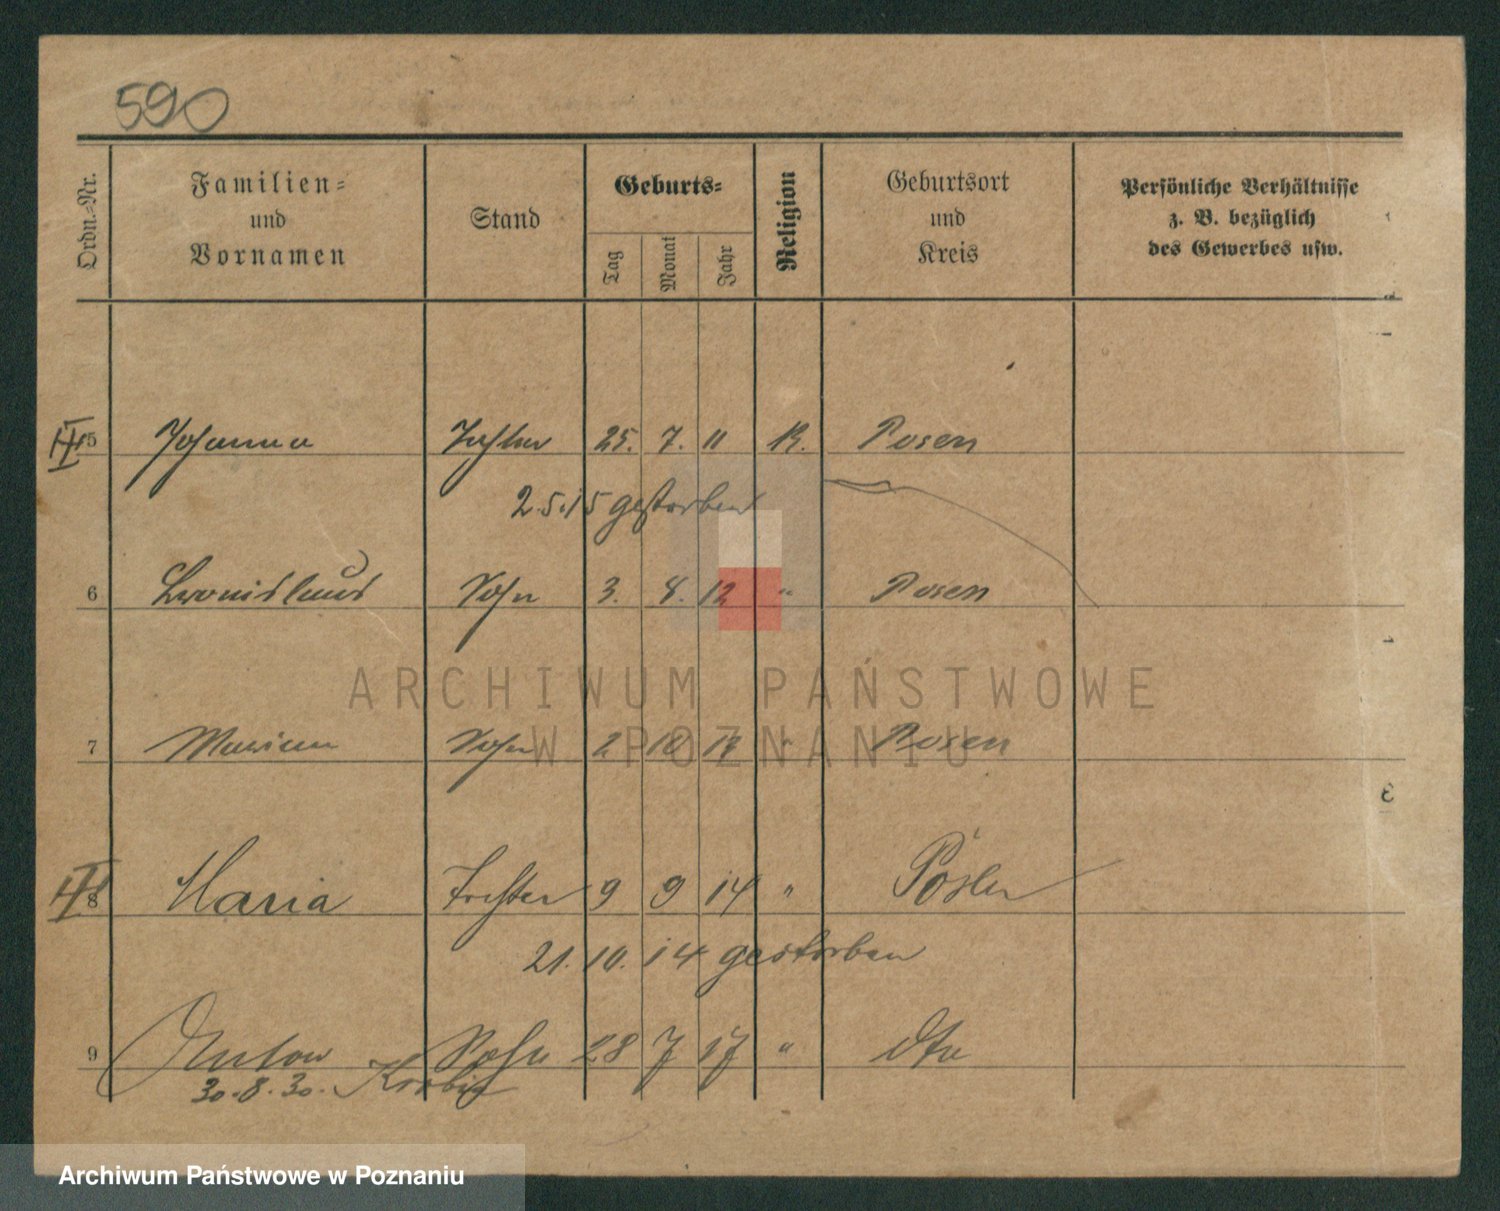 590
Ordn.-Nr.
Familien-
und
Vornamen
Stand
Geburts-
Tag
Monat
Jahr
Religion
Geburtsort
und
Kreis
Persönliche Verhältnisse
z. B. bezüglich
des Gewerbes usw.
5 Johanna Tochter 25. 7. 11 K. Posen
2.5.15 gestorben
6 Bronislaus Sohn 3. 8. 12 " Posen
ARCHIWUM PAŃSTWOWE
W POZNANIU
7 Marian Sohn 2 10 13 " Posen
8 Maria Tochter 9 9 14 "
21. 10. 14 gestorben
9 Anton Sohn 28 7 17 " dto
30.8.30.
Archiwum Państwowe w Poznaniu